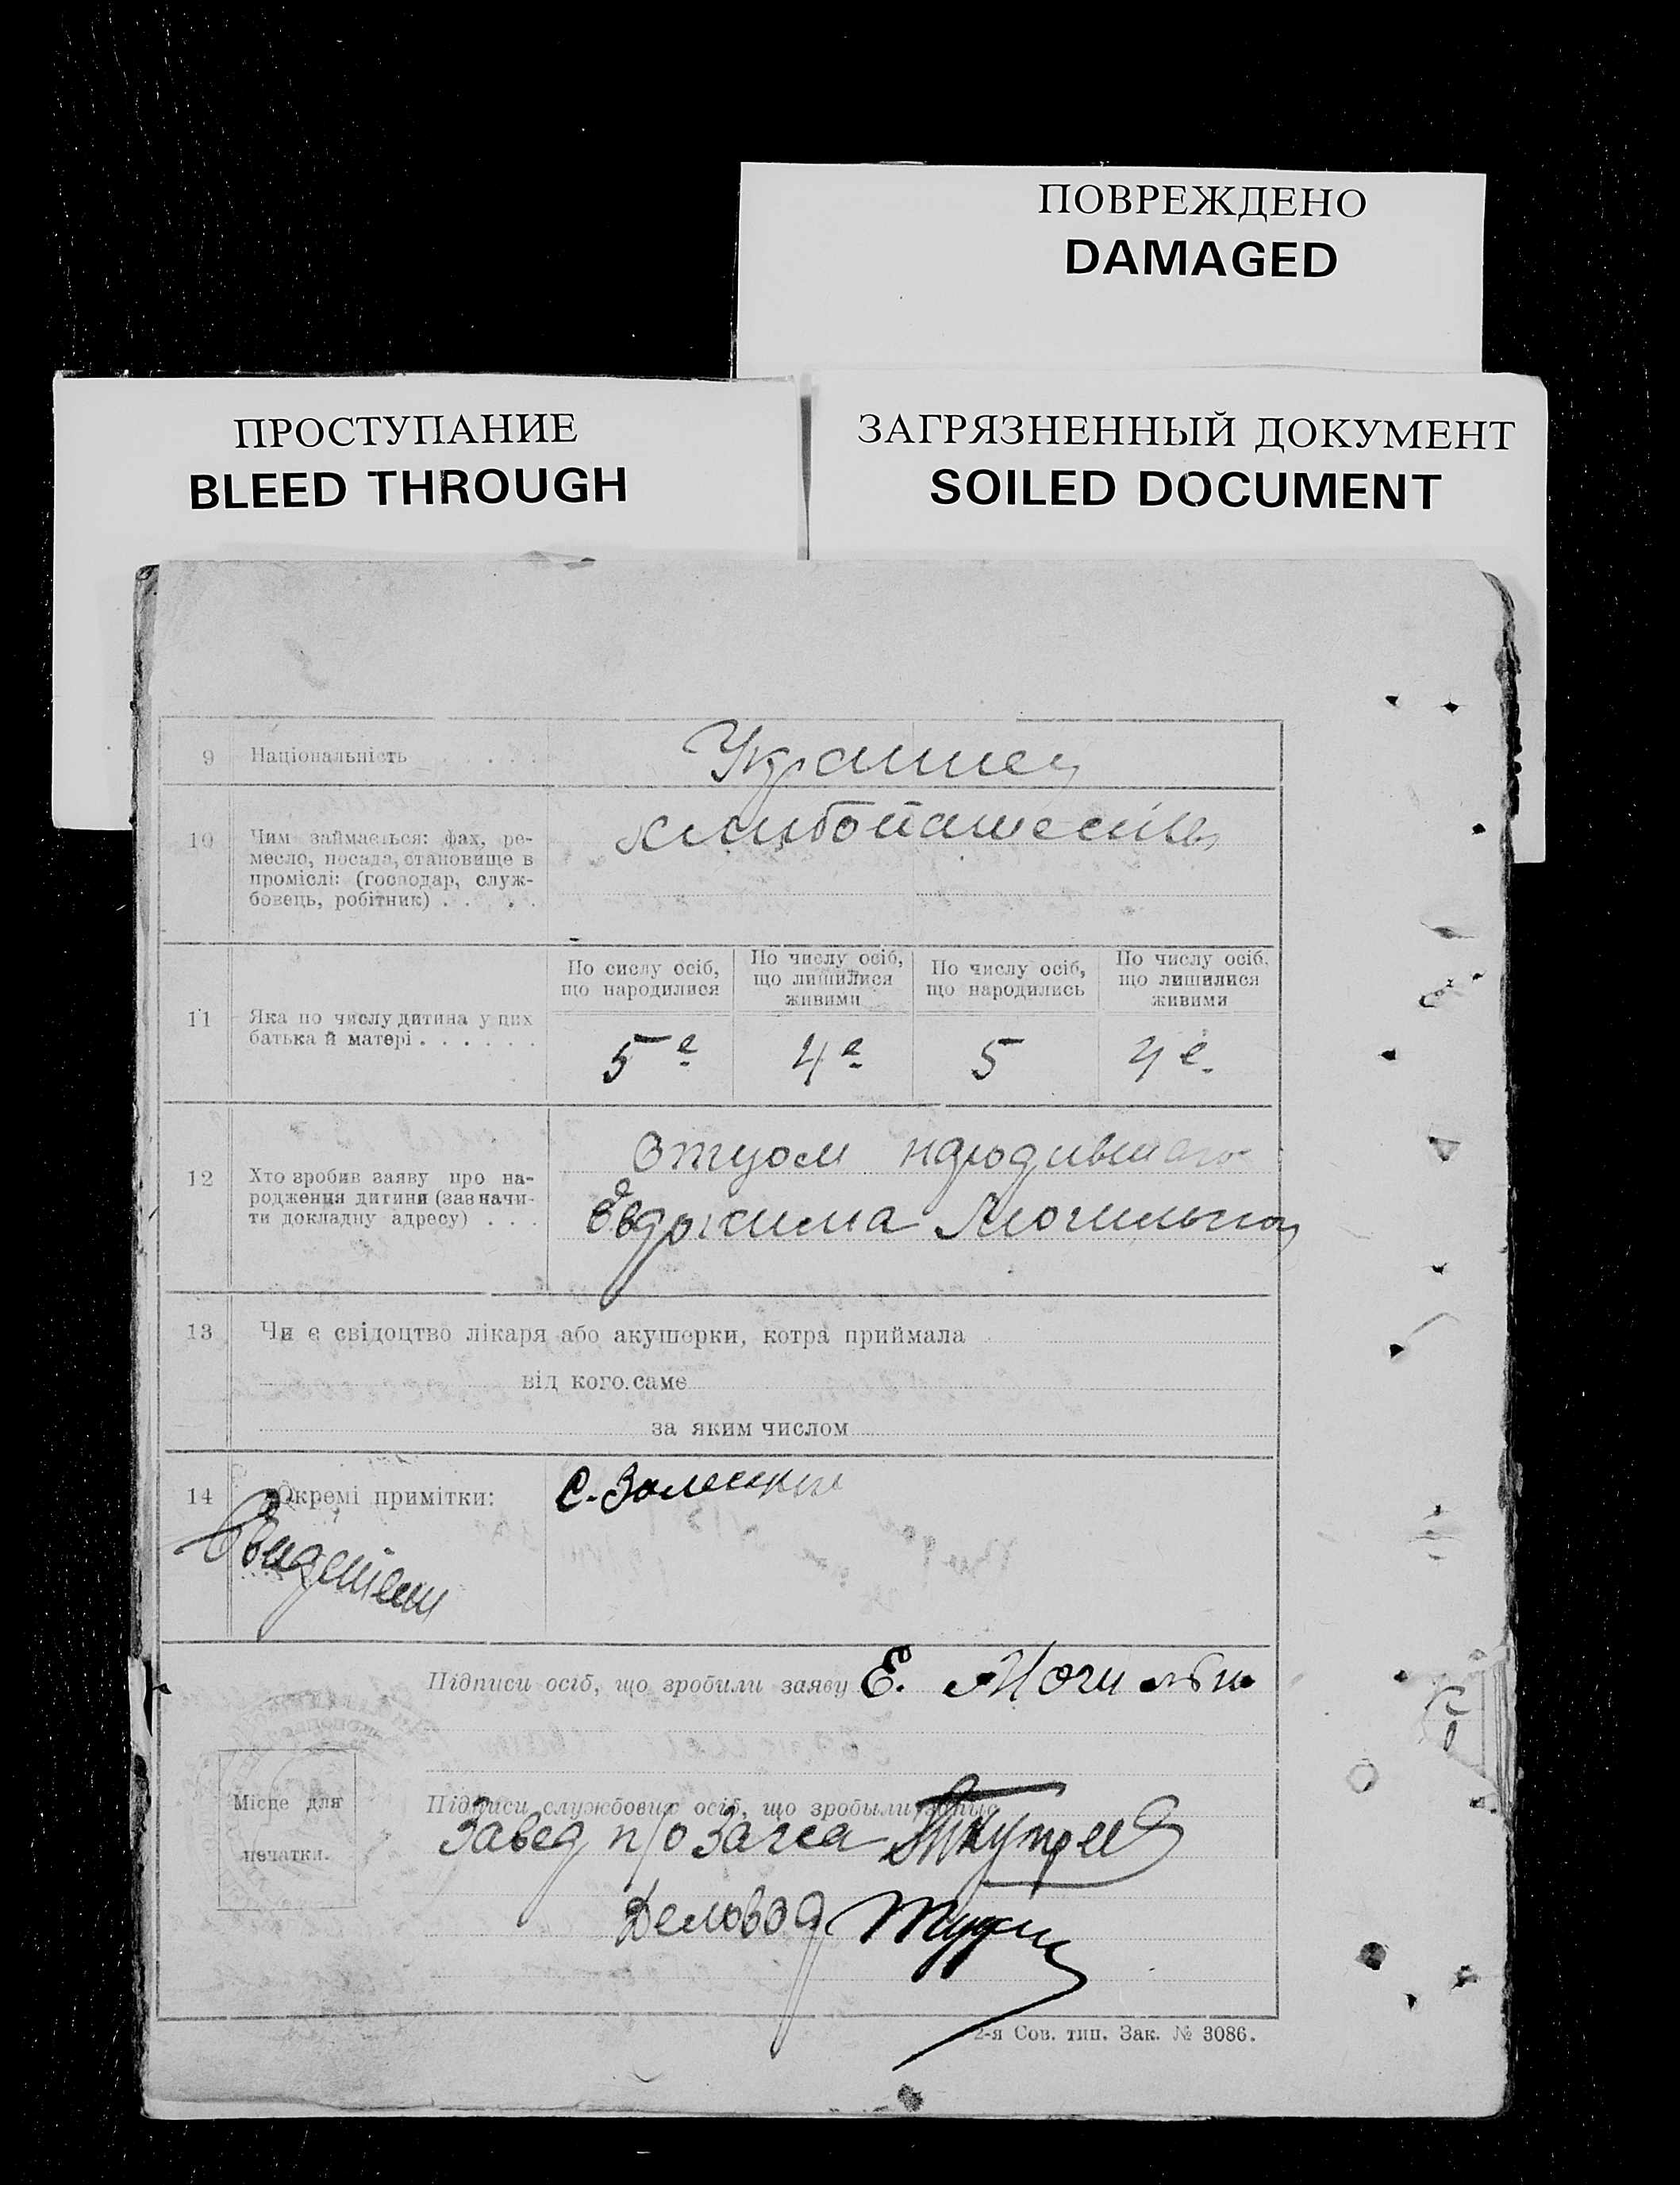 ПОВРЕЖДЕНО
DAMAGED
ПРОСТУПАНИЕ
BLEED THROUGH
ЗАГРЯЗНЕННЫЙ ДОКУМЕНТ
SOILED DOCUMENT
9 Національність . . . . . Украинец
10 Чим займається: фах, ре-
месло, посада, становище в
проміслі: (господар, служ-
бовець, робітник) . . . .
11 Яка по числу дитина у цих
батька й матері . . . . . .
По сислу осіб,
що народилися
По числу осіб,
що лишилися
живими
По числу осіб,
що народились
По числу осіб,
що лишилися
живими
5е 4е 5 4е.
12 Хто зробив заяву про на-
родження дитини (зазначи-
ти докладну адресу) . . .
Отцом
Евдокима
13 Чи є свідоцтво лікаря або акушерки, котра приймала
від кого саме
за яким числом
14 Окремі примітки:
Підписи осіб, що зробили заяву Е.
Місце для
печатки.
Підписи службових осіб, що зробыли запис
Завед п/о Загса
Деловод
2-я Сов. тип. Зак. № 3086.